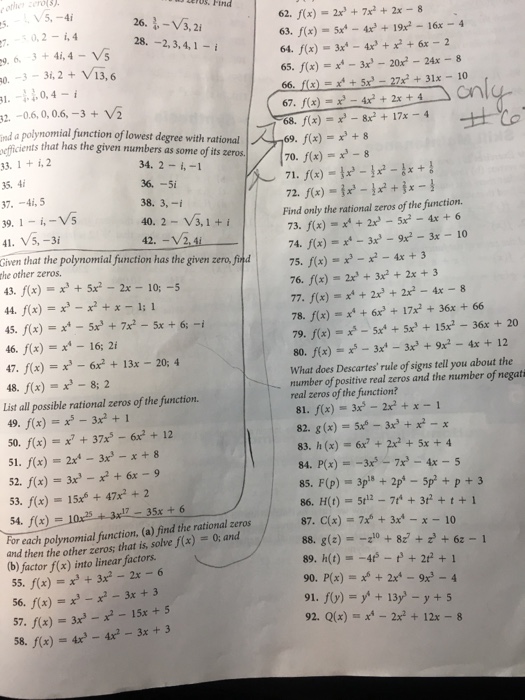 other zero(s).
25. √5, -4i
26. 3/4, -√3, 2i
27. 0, 2 - i, 4
28. -2, 3, 4, 1 - i
29. 6, -3 + 4i, 4 - √5
30. -3 - 3i, 2 + √13, 6
31. 0, 4 - i
32. -0.6, 0, 0.6, -3 + √2
Find a polynomial function of lowest degree with rational
coefficients that has the given numbers as some of its zeros.
33. 1 + i, 2
34. 2 - i, -1
35. 4i
36. -5i
37. -4i, 5
38. 3, -i
39. 1 - i, -√5
40. 2 - √3, 1 + i
41. √5, -3i
42. -√2, 4i
Given that the polynomial function has the given zero, find
the other zeros.
43. f(x) = x³ + 5x² - 2x - 10; -5
44. f(x) = x³ - x² + x - 1; 1
45. f(x) = x⁴ - 5x³ + 7x² - 5x + 6; -i
46. f(x) = x⁴ - 16; 2i
47. f(x) = x³ - 6x² + 13x - 20; 4
48. f(x) = x³ - 8; 2
List all possible rational zeros of the function.
49. f(x) = x⁵ - 3x² + 1
50. f(x) = x⁷ + 37x⁵ - 6x² + 12
51. f(x) = 2x⁴ - 3x³ - x + 8
52. f(x) = 3x³ - x² + 6x - 9
53. f(x) = 15x⁶ + 47x² + 2
54. f(x) = 10x²⁵ + 3x¹⁷ - 35x + 6
For each polynomial function, (a) find the rational zeros
and then the other zeros; that is, solve f(x) = 0; and
(b) factor f(x) into linear factors.
55. f(x) = x³ + 3x² - 2x - 6
56. f(x) = x³ - x² - 3x + 3
57. f(x) = 3x³ - x² - 15x + 5
58. f(x) = 4x³ - 4x² - 3x + 3
62. f(x) = 2x³ + 7x² + 2x - 8
63. f(x) = 5x⁴ - 4x³ + 19x² - 16x - 4
64. f(x) = 3x⁴ - 4x³ + x² + 6x - 2
65. f(x) = x⁴ - 3x³ - 20x² - 24x - 8
66. f(x) = x⁴ + 5x³ - 27x² + 31x - 10
67. f(x) = x³ - 4x² + 2x + 4
only
68. f(x) = x³ - 8x² + 17x - 4
69. f(x) = x³ + 8
70. f(x) = x³ - 8
71. f(x) = ⅓x³ - ½x² - ⅙x + ⅙
72. f(x) = ⅔x³ - ½x² + ⅔x - ½
Find only the rational zeros of the function.
73. f(x) = x⁴ + 2x³ - 5x² - 4x + 6
74. f(x) = x⁴ - 3x³ - 9x² - 3x - 10
75. f(x) = x³ - x² - 4x + 3
76. f(x) = 2x³ + 3x² + 2x + 3
77. f(x) = x⁴ + 2x³ + 2x² - 4x - 8
78. f(x) = x⁴ + 6x³ + 17x² + 36x + 66
79. f(x) = x⁵ - 5x⁴ + 5x³ + 15x² - 36x + 20
80. f(x) = x⁵ - 3x⁴ - 3x³ + 9x² - 4x + 12
What does Descartes' rule of signs tell you about the
number of positive real zeros and the number of negati
real zeros of the function?
81. f(x) = 3x⁵ - 2x² + x - 1
82. g(x) = 5x⁶ - 3x³ + x² - x
83. h(x) = 6x⁷ + 2x² + 5x + 4
84. P(x) = -3x⁵ - 7x³ - 4x - 5
85. F(p) = 3p¹⁸ + 2p⁴ - 5p² + p + 3
86. H(t) = 5t¹² - 7t⁴ + 3t² + t + 1
87. C(x) = 7x⁶ + 3x⁴ - x - 10
88. g(z) = -z¹⁰ + 8z⁷ + z³ + 6z - 1
89. h(t) = -4t⁵ - t³ + 2t² + 1
90. P(x) = x⁶ + 2x⁴ - 9x³ - 4
91. f(y) = y⁴ + 13y³ - y + 5
92. Q(x) = x⁴ - 2x² + 12x - 8